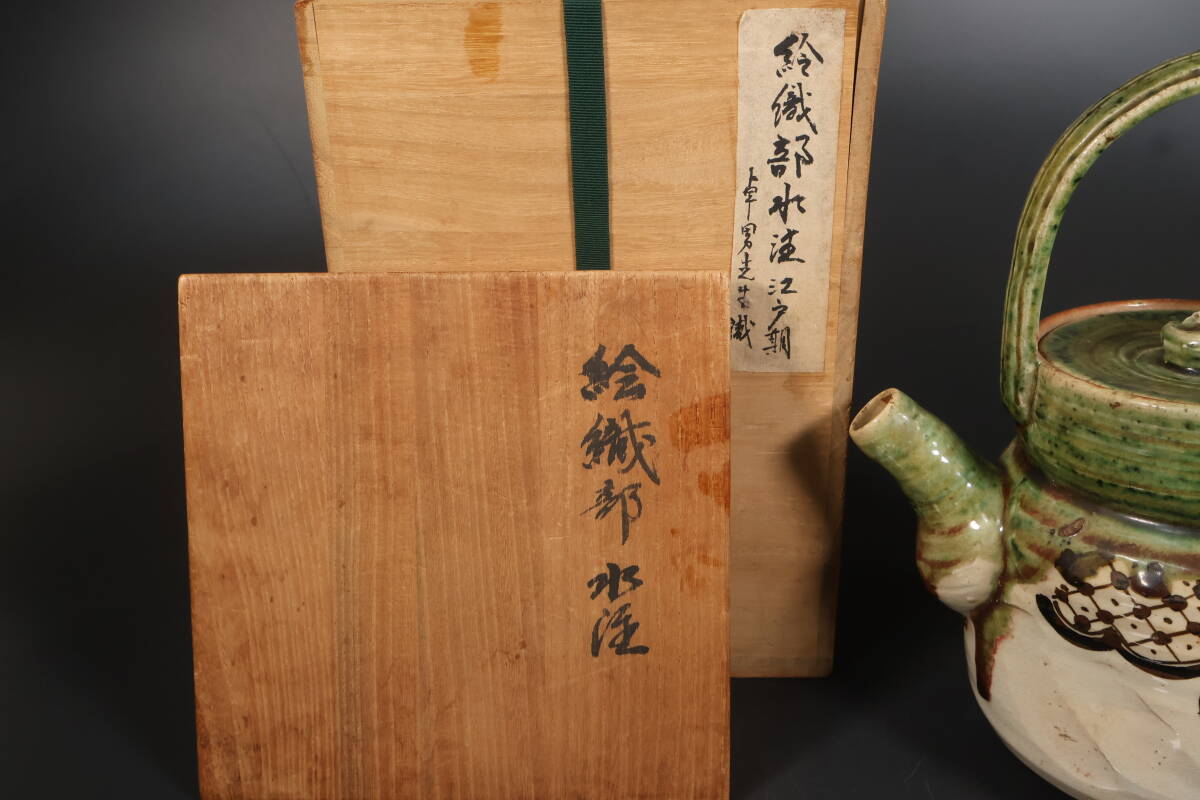 絵織部水注江戸期
卓男先生識
絵織部 水注